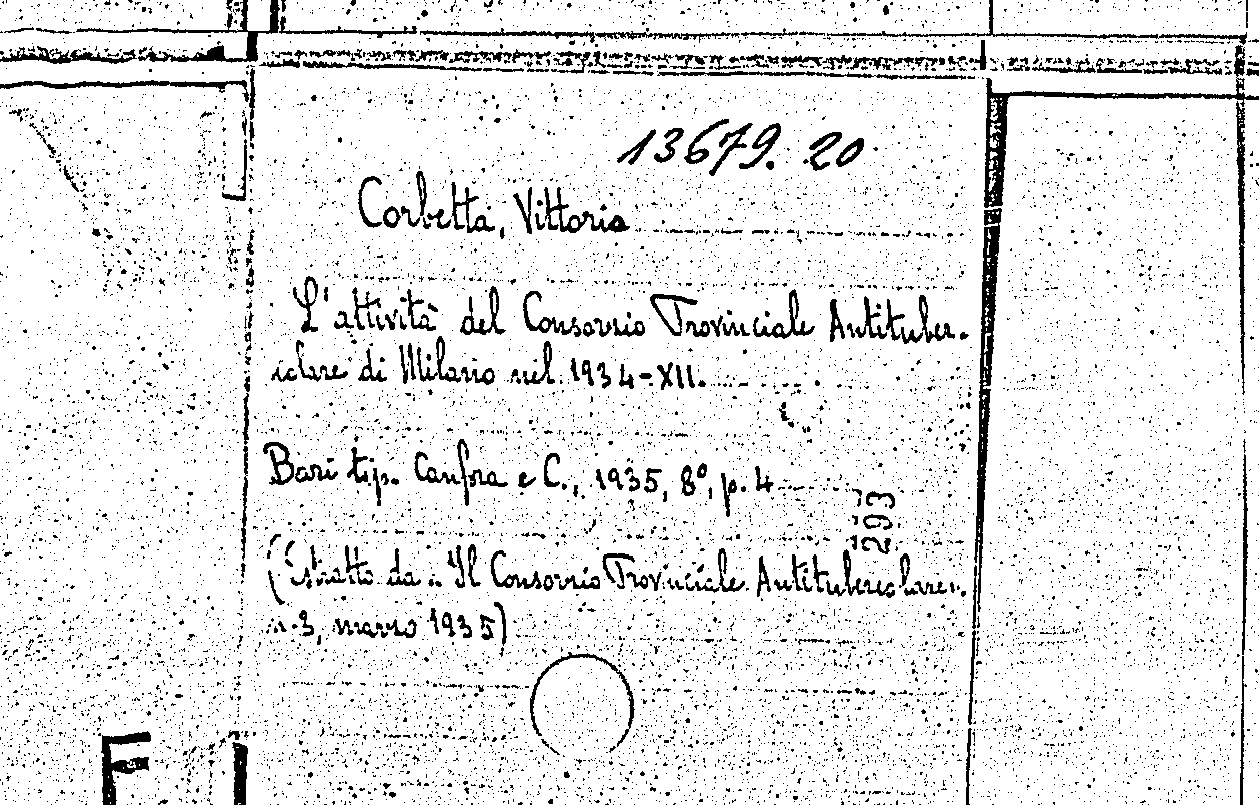 13679. 20
Corbetta, Vittorio
L'attività del Consorzio Provinciale Antituber-
colare di Milano nel 1934-XII.
Bari tip. Canfora e C., 1935, 8°, p. 4
293
(Estratto da: "Il Consorzio Provinciale Antitubercolare".
n. 3, marzo 1935)